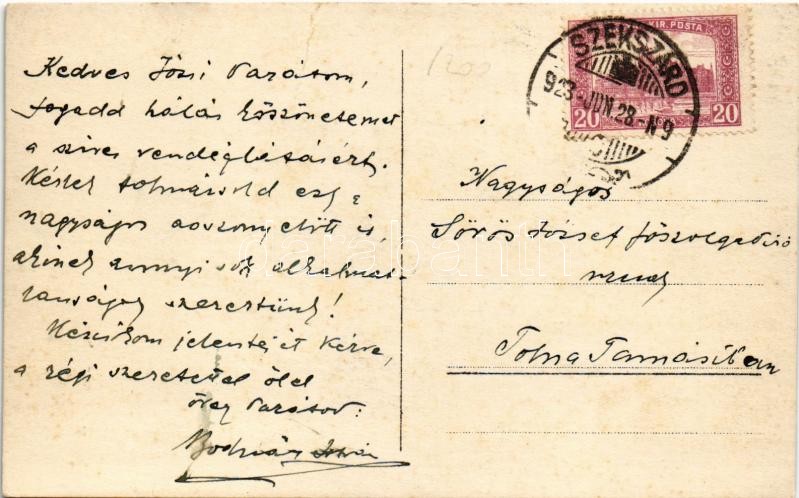 Kedves Józsi Barátom,
fogadd hálás köszönetemet
a szives vendéglátásért.
Kérlek tolmácsold ezt a
nagyságos asszony előtt is,
akinek annyi sok alkalmat-
lanságot szereztünk!
Kézcsókom jelentését kérve,
a régi szeretettel ölel
öreg barátod:
István
KIR. POSTA
20 20
SZEKSZÁRD
923-JUN.28.-N9
Nagyságos
Sörös József főszolgabiró
urnak
Tolna Tamásiban
darabanth